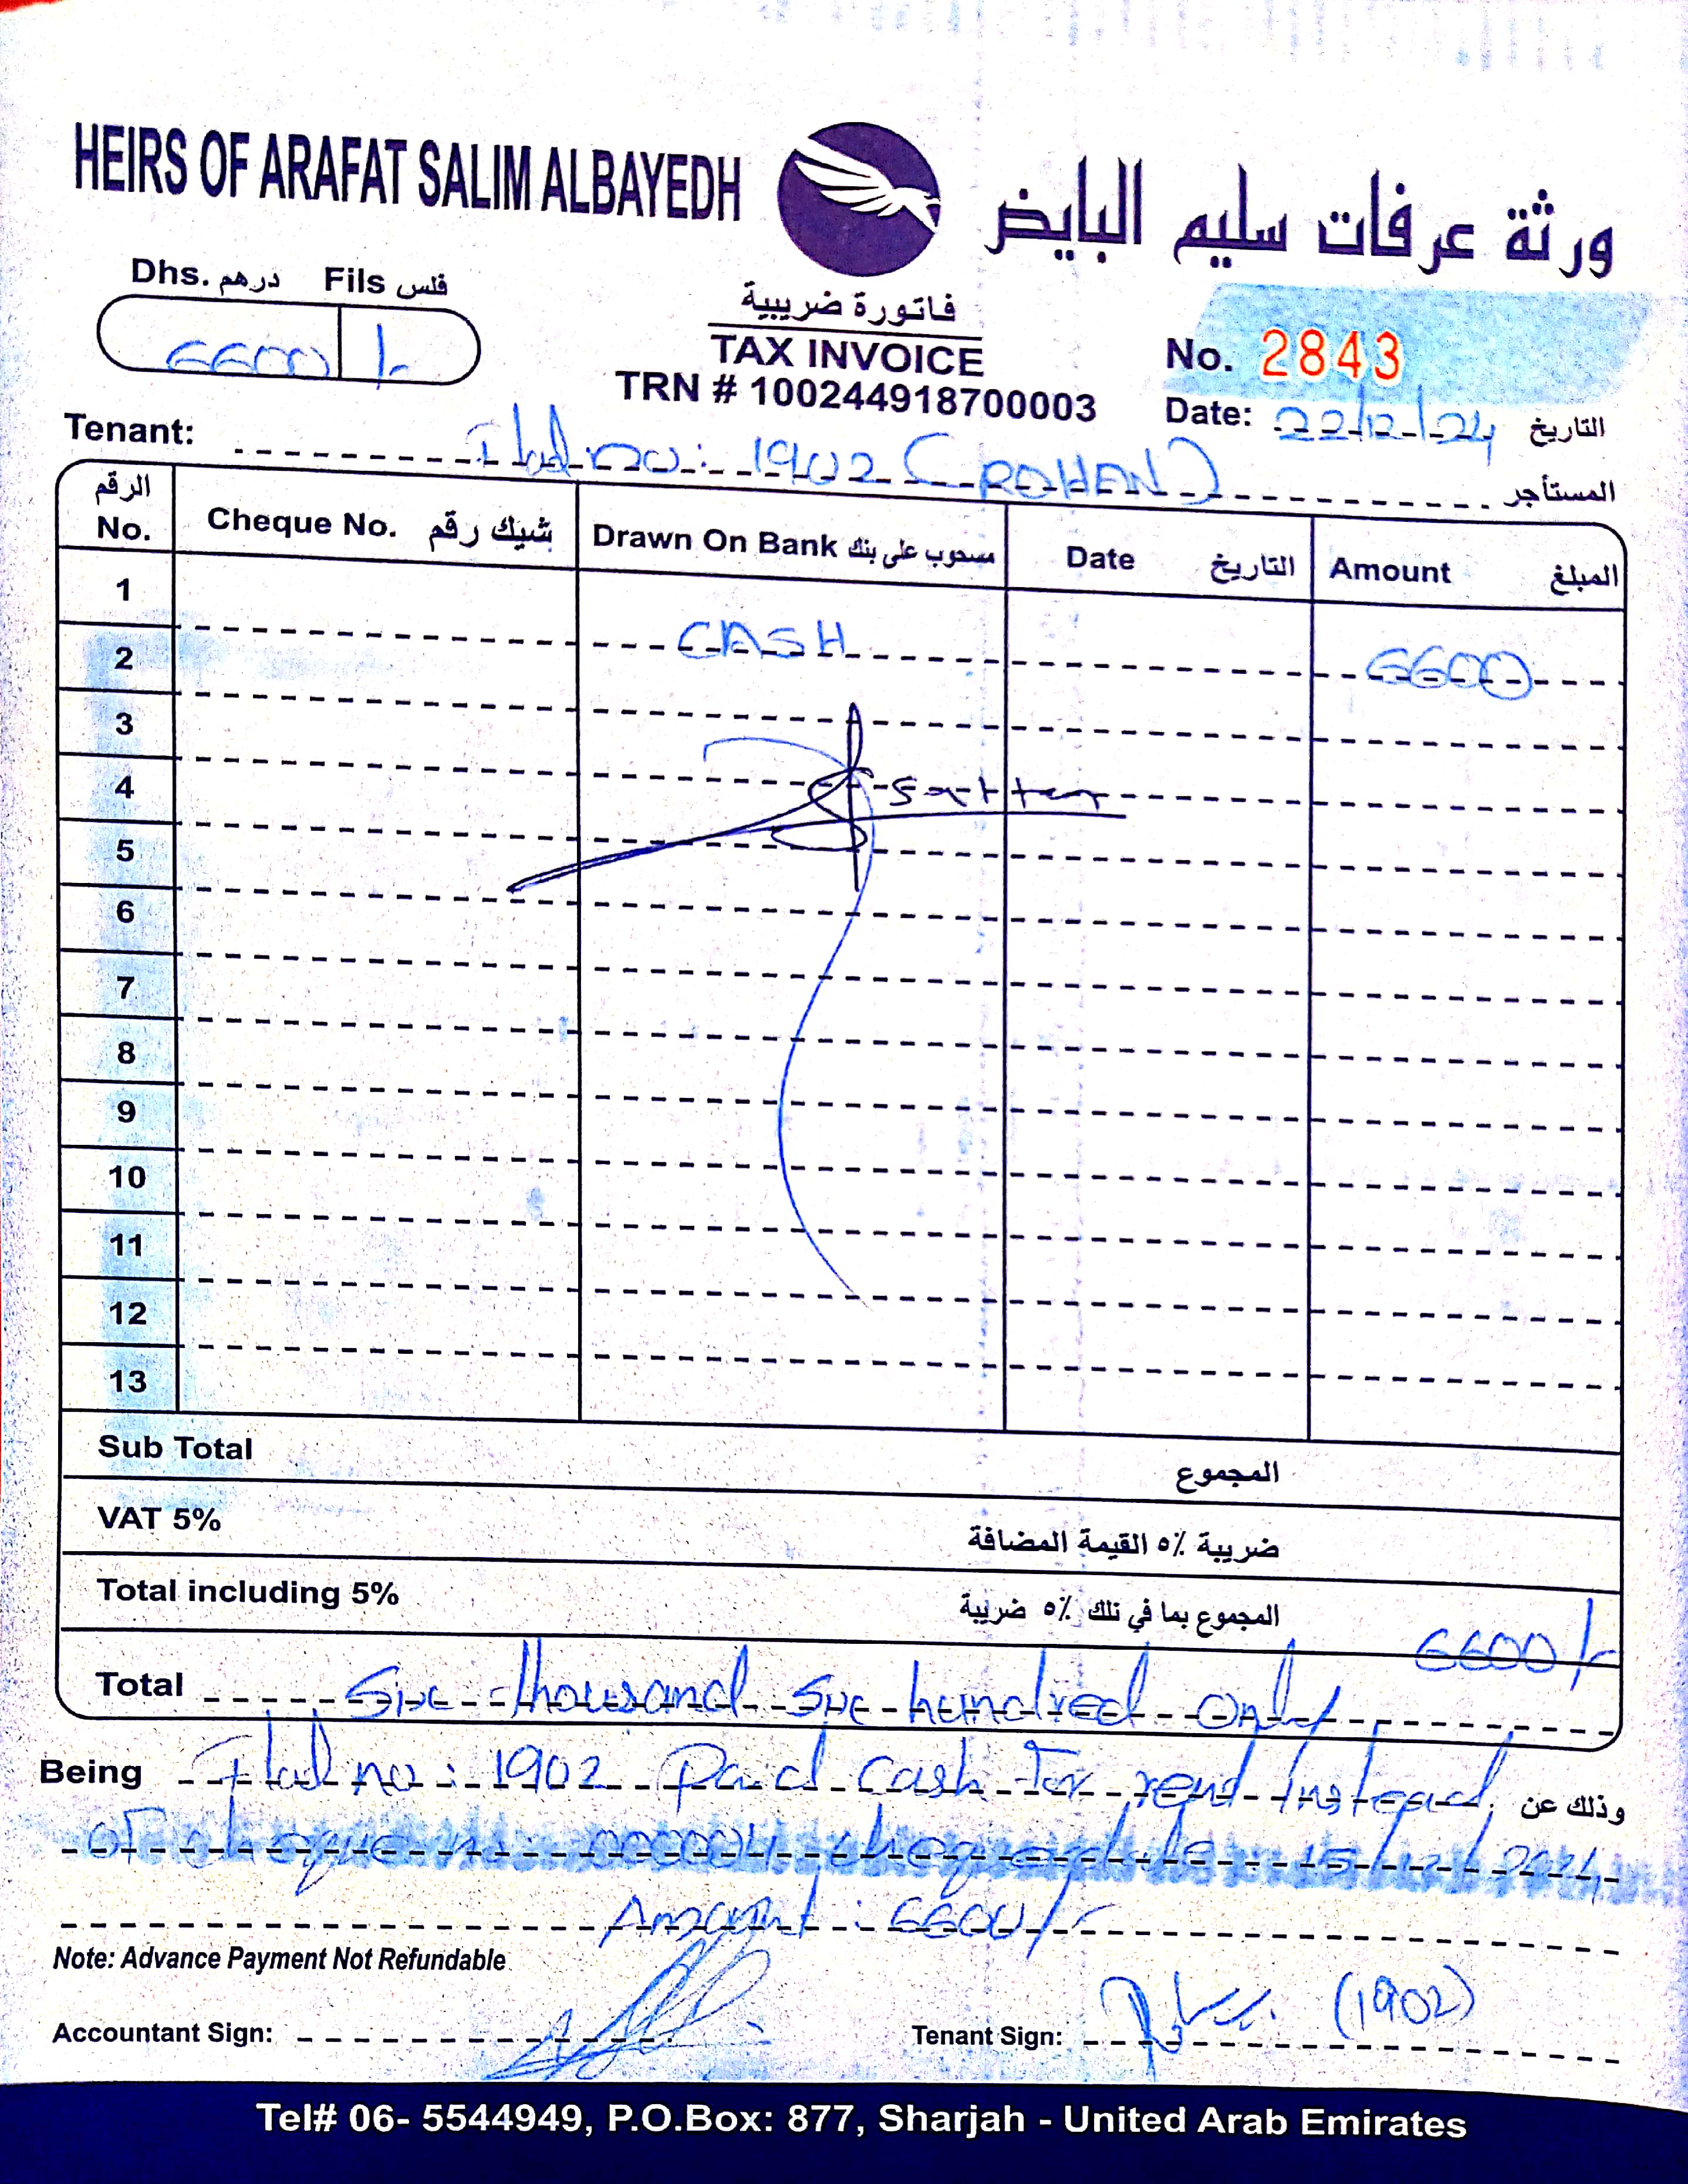 HEIRS OF ARAFAT SALIM ALBAYEDH
ورثة عرفات سليم البايض
Dhs. درهم Fils فلس
6600 /-
فاتورة ضريبية
TAX INVOICE
TRN # 100244918700003
No. 2843
Date: 22/12/24 التاريخ
Tenant: Flat no: 1902 (ROHAN) المستأجر
الرقم No. Cheque No. شيك رقم Drawn On Bank مسحوب على بنك Date التاريخ Amount المبلغ
1
2 CASH 6600
3
4
5
6
7
8
9
10
11
12
13
Sub Total المجموع
VAT 5% ضريبة ٥٪ القيمة المضافة
Total including 5% المجموع بما في تلك ٥٪ ضريبة 6600/-
Total Six thousand Six hundred only
Being Flat no: 1902 Paid Cash for rent Instead وذلك عن
of cheque no: 000004 cheque date 15/12/2024
Amount: 6600/-
Note: Advance Payment Not Refundable
Accountant Sign: Tenant Sign: (1902)
Tel# 06- 5544949, P.O.Box: 877, Sharjah - United Arab Emirates